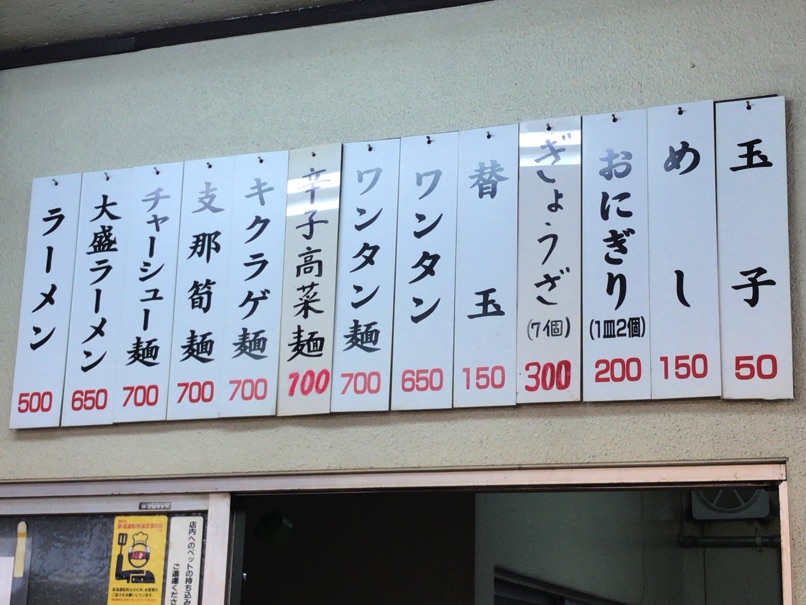 ラーメン
500
大盛ラーメン
650
チャーシュー麺
700
支那筍麺
700
キクラゲ麺
700
辛子高菜麺
700
ワンタン麺
700
ワンタン
650
替玉
150
ぎょうざ
(7個)
300
おにぎり
(1皿2個)
200
めし
150
玉子
50
店内へのペットの持ち込み
ご遠慮くださ